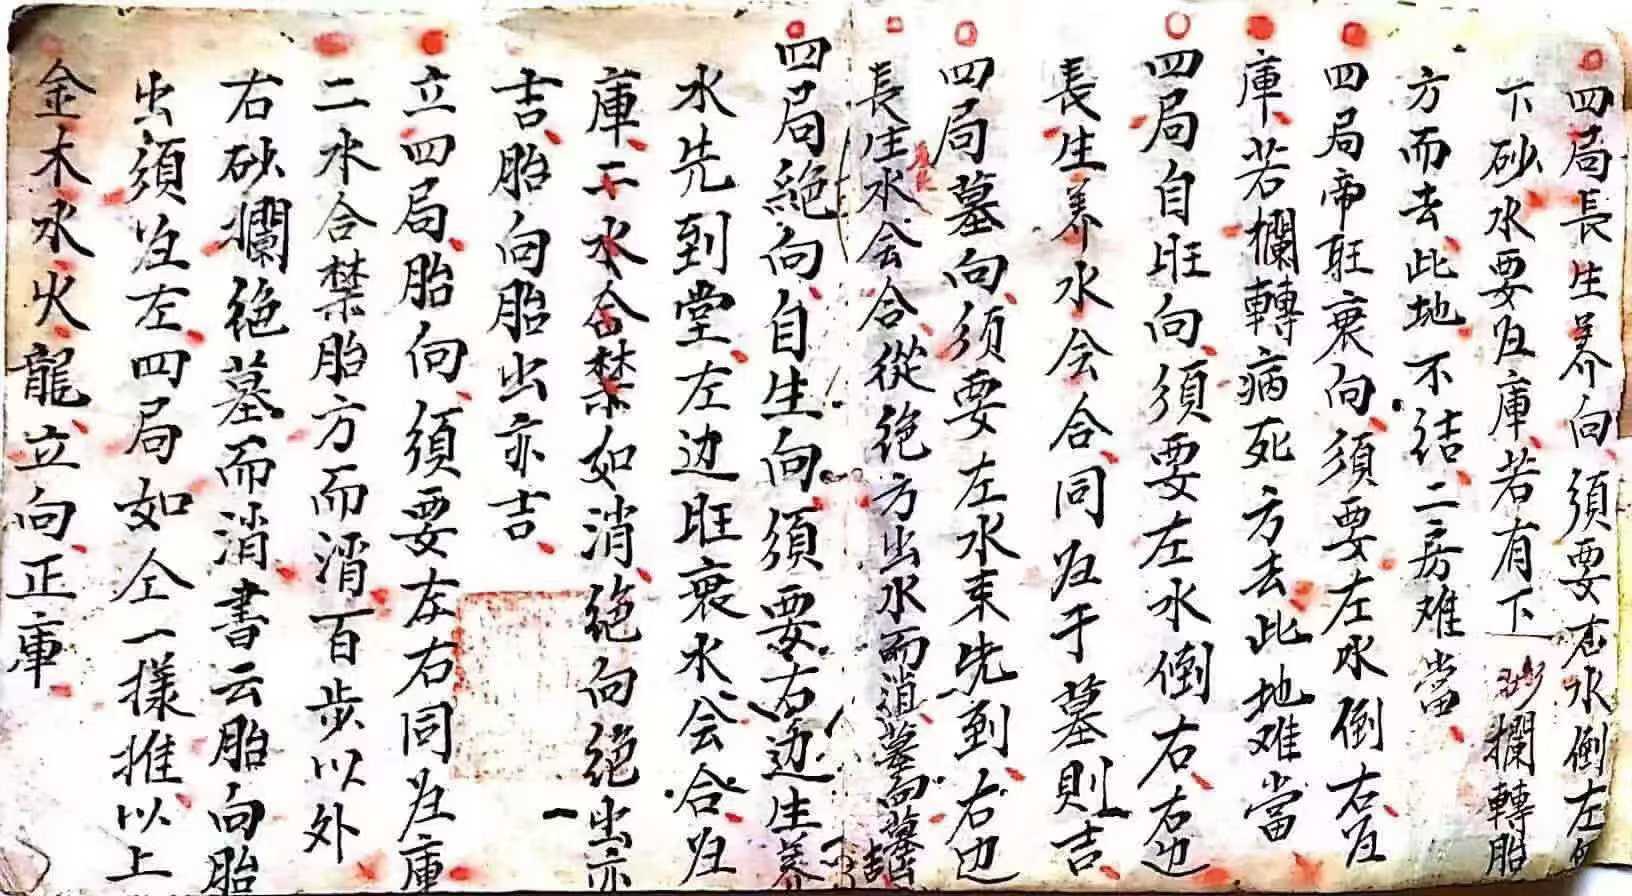 四局長生养向須要右水倒左
下砂水要归庫若有下砂攔轉胎
方而去此地不结二房难當
四局帝旺衰向須要左水倒右归
庫若攔轉病死方去此地难當
四局自旺向須要左水倒右右边
長生养水会合同归于墓則吉
四局墓向须要左水来先到右边
長生水会合從绝方出水而消墓向墓
四局绝向自生向須要右边生养
水先到堂左边旺衰水会合归
庫二水合禁如消绝向绝出亦
吉胎向胎出亦吉
立四局胎向須要左右同归庫
二水合禁胎方而消百步以外
右砂攔绝墓而消書云胎向胎
出須归左四局如仝一樣推以上
金木水火龍立向正庫